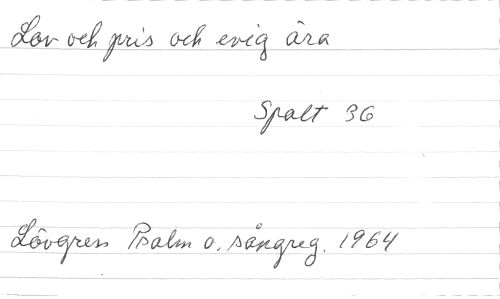 Lov och pris och evig ära
Spalt 36
Lövgren Psalm o. sångreg. 1964